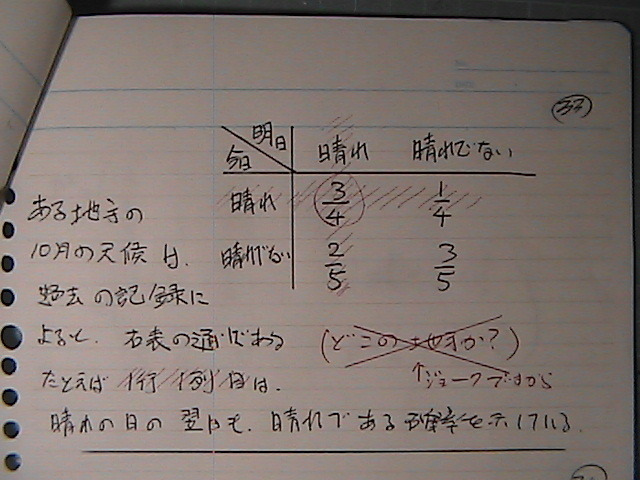 33
明日
今日
晴れ 晴れでない
晴れ 3/4 1/4
晴れでない 2/5 3/5
ある地方の
10月の天候は、
過去の記録に
よると、右表の通りである
(どこの地方か?)
↑ジョークですから
たとえば 1行1列目は、
晴れの日の翌日も、晴れである確率を示している。